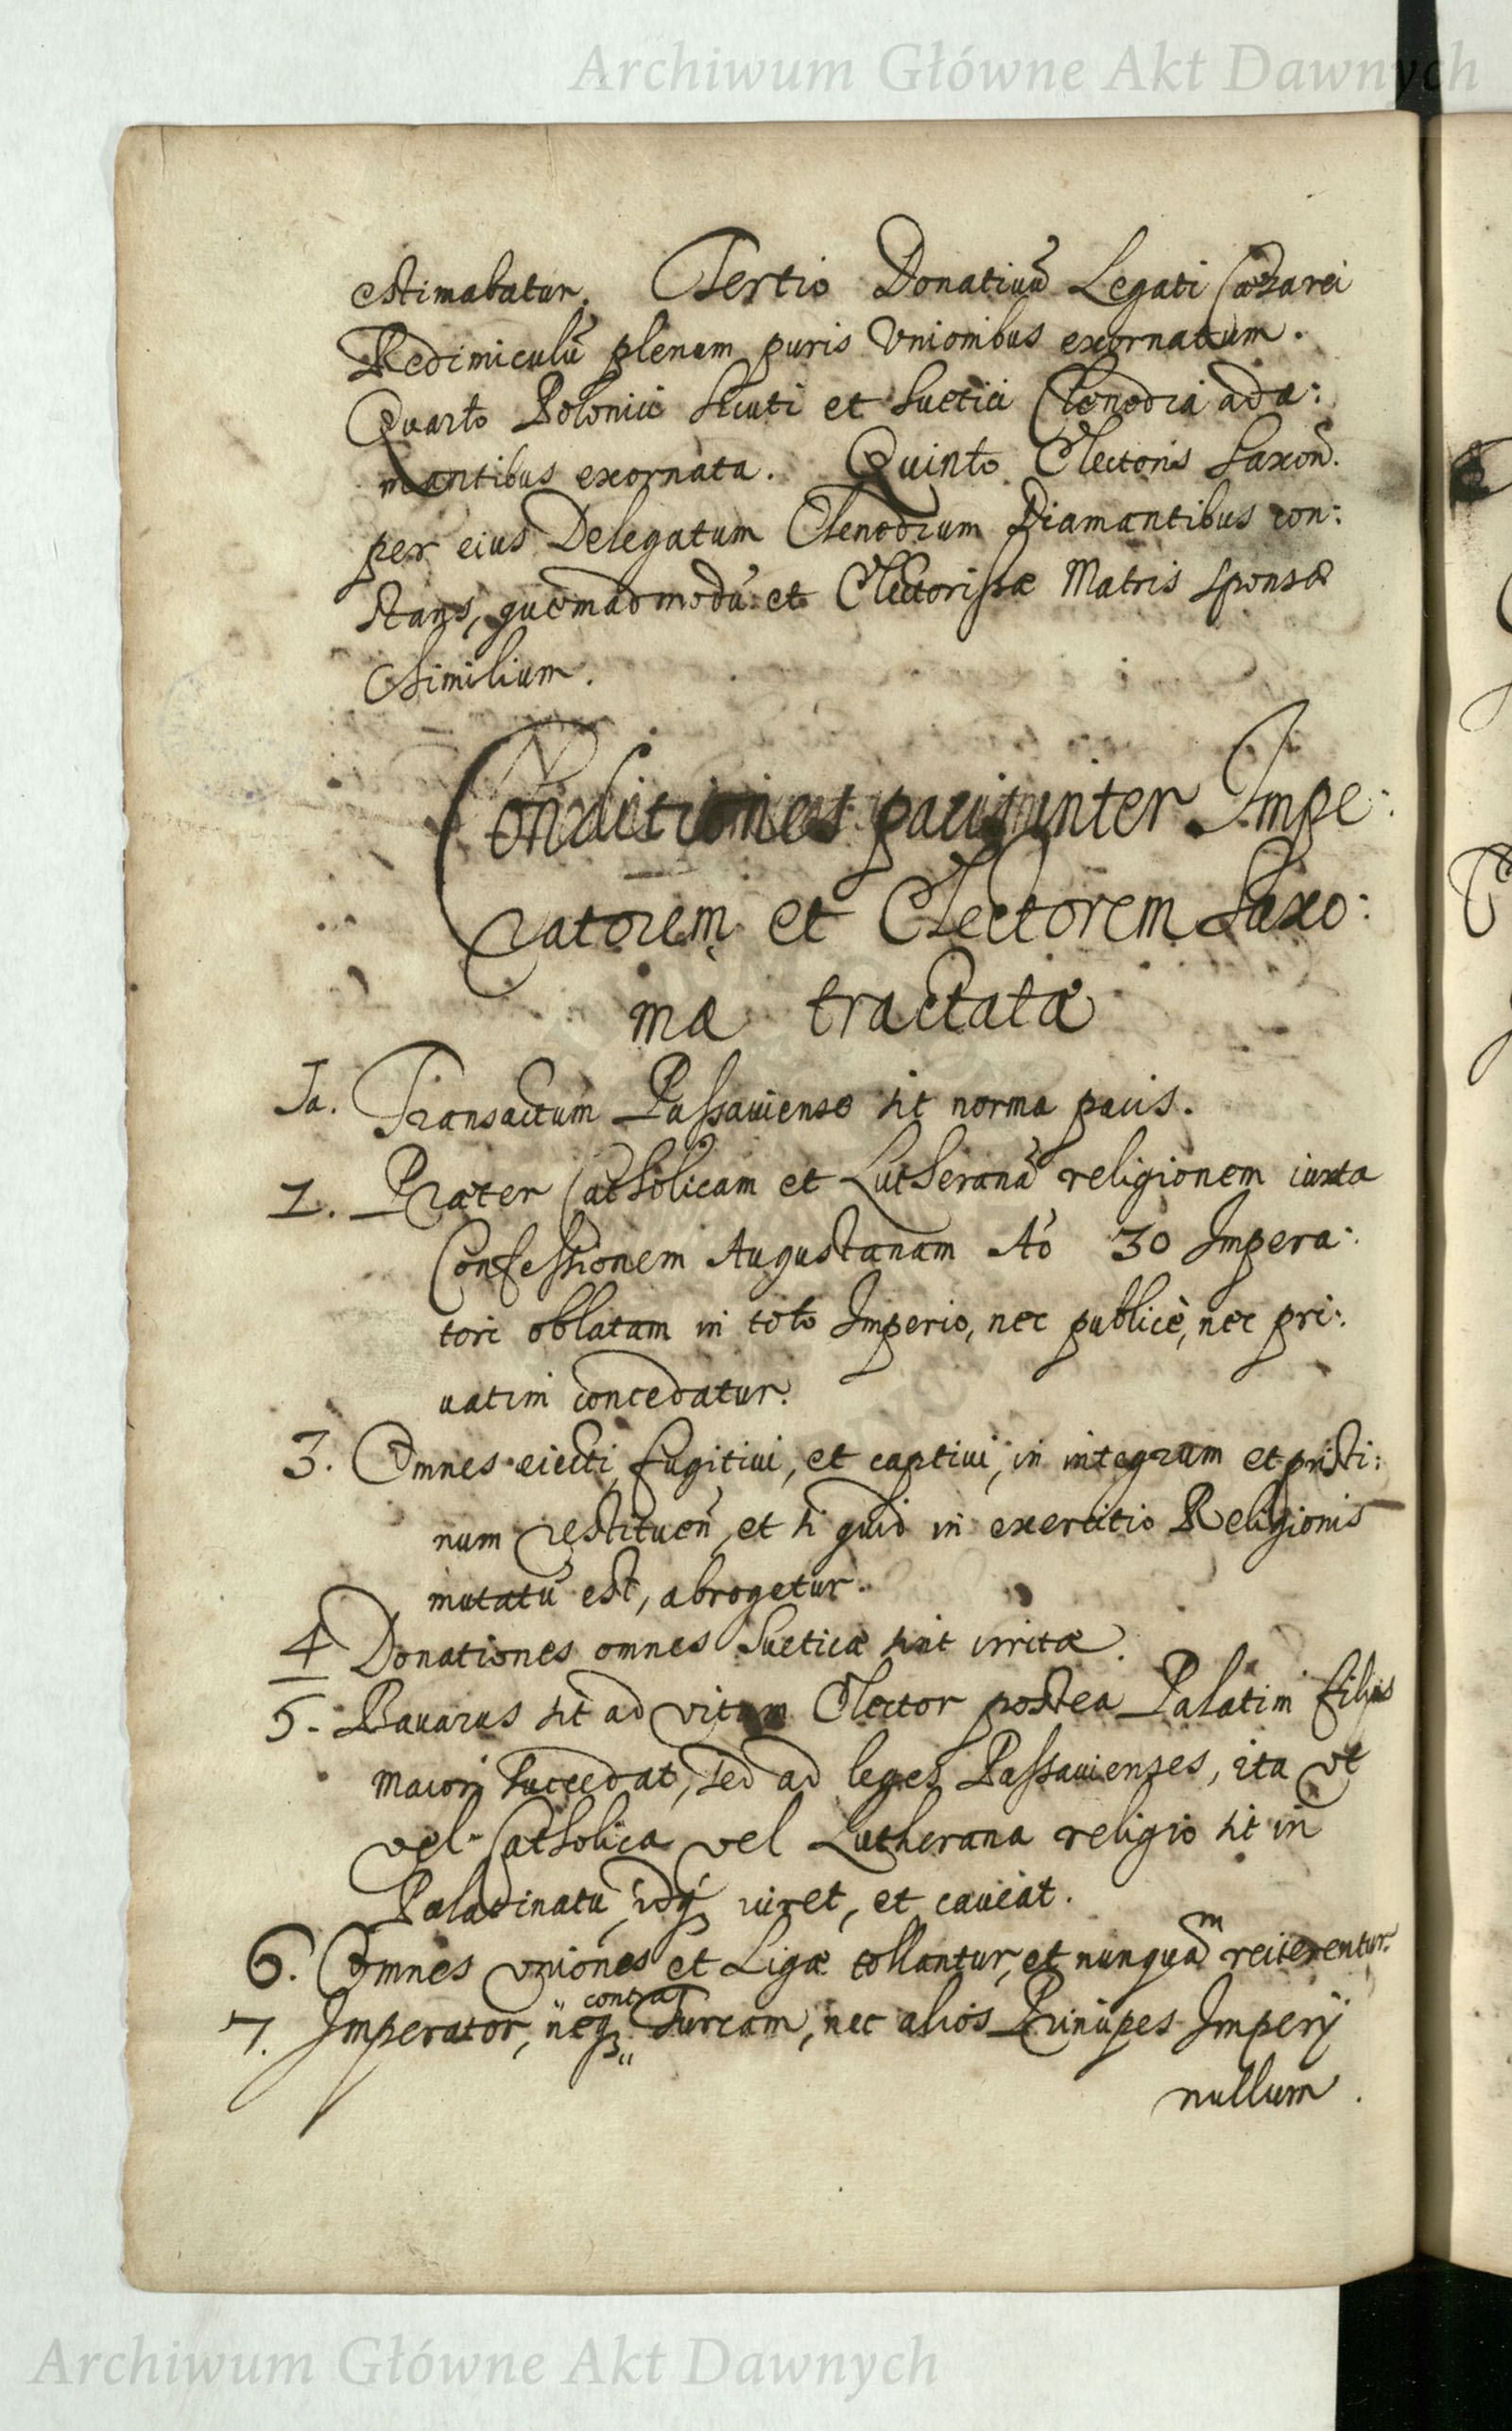 Archiwum Główne Akt Dawnych
estimabatur. Tertio Donativũ Legati Caesarei
Redimiculũ plenum puris Unionibus exornatum.
Quarto Polonici Scuti et Suetici Clenodia ada:
mantibus exornata. Quinto Electoris Saxoñ.
per eius Delegatum Clenodium Diamantibus con:
stans, quemadmodũ et Electorissae Matris sponsae
Similium.
Conditiones pacis inter Impe:
ratorem et Electorem Saxo:
niae tractatae
Ia. Transactum Passauiense sit norma pacis.
2. Praeter Catholicam et Lutheranã religionem iuxta
Confessionem Augustanam Aõ 30 Impera:
tori oblatam in toto Imperio, nec publicè, nec pri:
uatim concedatur.
3. Omnes eiecti, fugitiui, et captiui, in integrum et pristi:
num restituen̄, et si quid in exercitio Religionis
mutatũ est, abrogetur.
4 Donationes omnes Sueticae sint irritae.
5. Bauarus sit ad vitam Elector postea Palatini filius
maior succedat, sed ad leges Passauienses, ita vt
vel Catholica vel Lutherana religio sit in
Palatinatu, idq3 iuret, et caueat.
6. Omnes vniones et Ligae tollantur, et nunquam reiterentur.
7. Imperator, neq3 contra Turcam, nec alios Principes Imperij
nullum.
Archiwum Główne Akt Dawnych